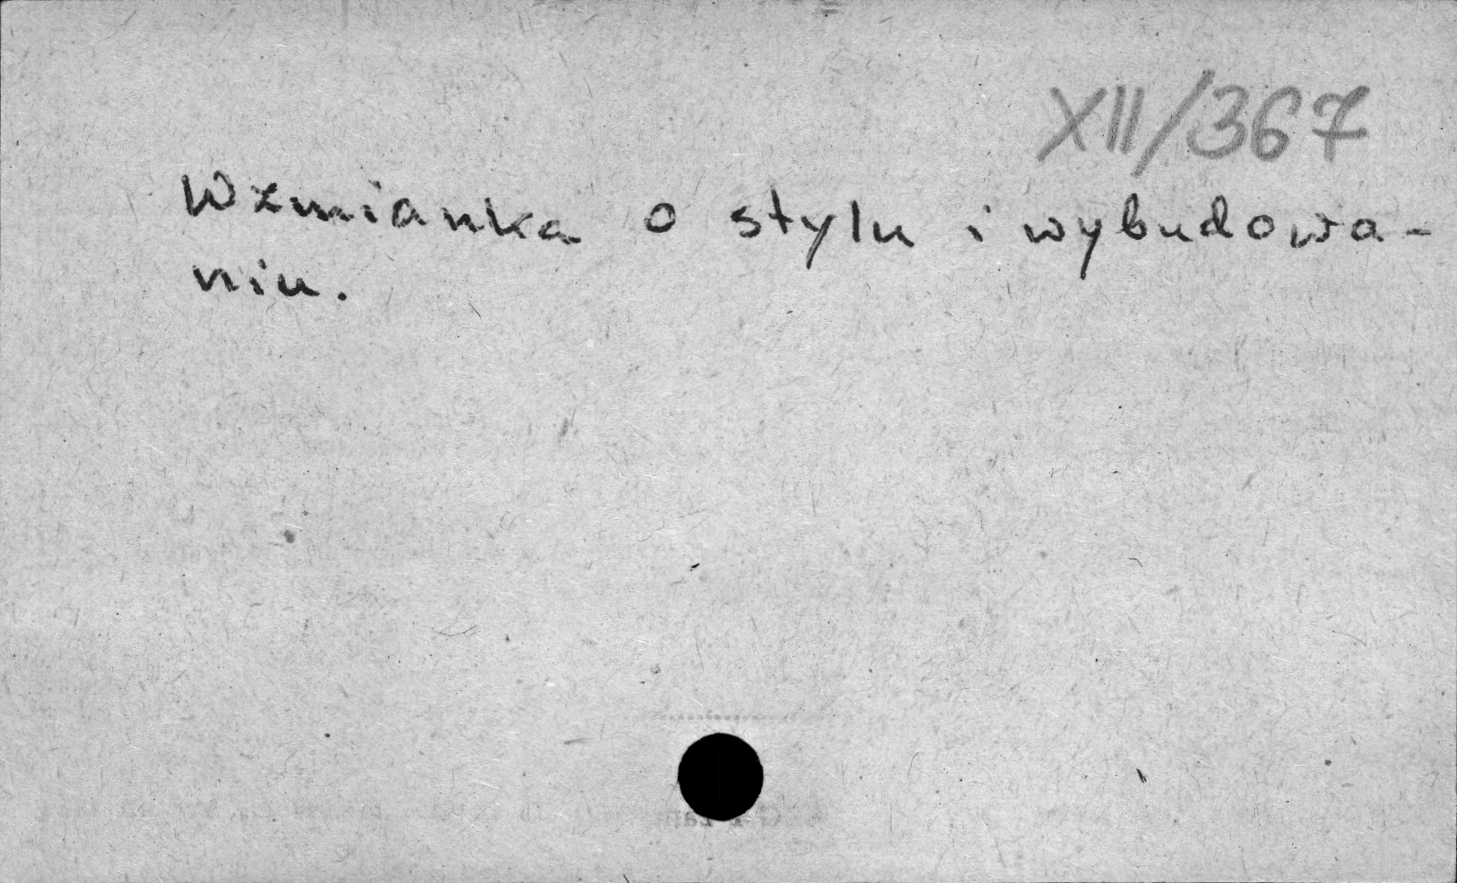 XII/367
Wzmianka o stylu i wybudowa-
niu.